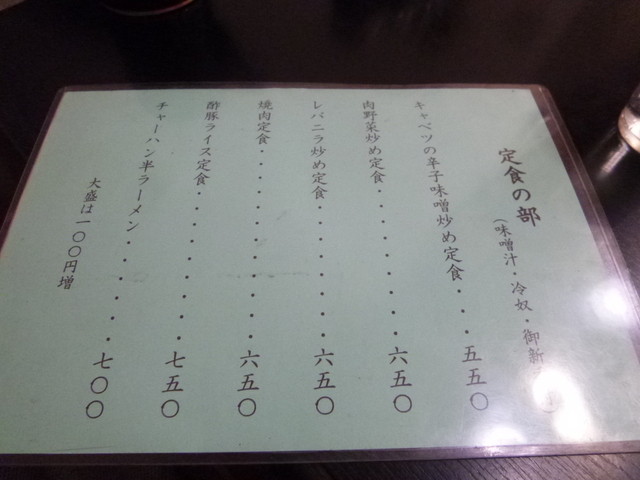 定食の部
(味噌汁・冷奴・御新
キャベツの辛子味噌炒め定食・・・五五〇
肉野菜炒め定食・・・・・・・・六五〇
レバニラ炒め定食・・・・・・・六五〇
焼肉定食・・・・・・・・・・六五〇
酢豚ライス定食・・・・・・・・七五〇
チャーハン半ラーメン・・・・・・七〇〇
大盛は一〇〇円増